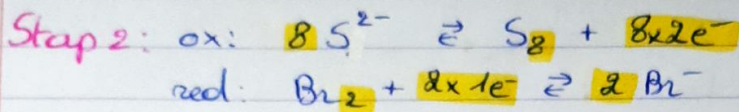 Stap 2: ox: 8 S²⁻ ⇄ S₈ + 8x2e⁻
red: Br₂ + 2x1e⁻ ⇄ 2 Br⁻